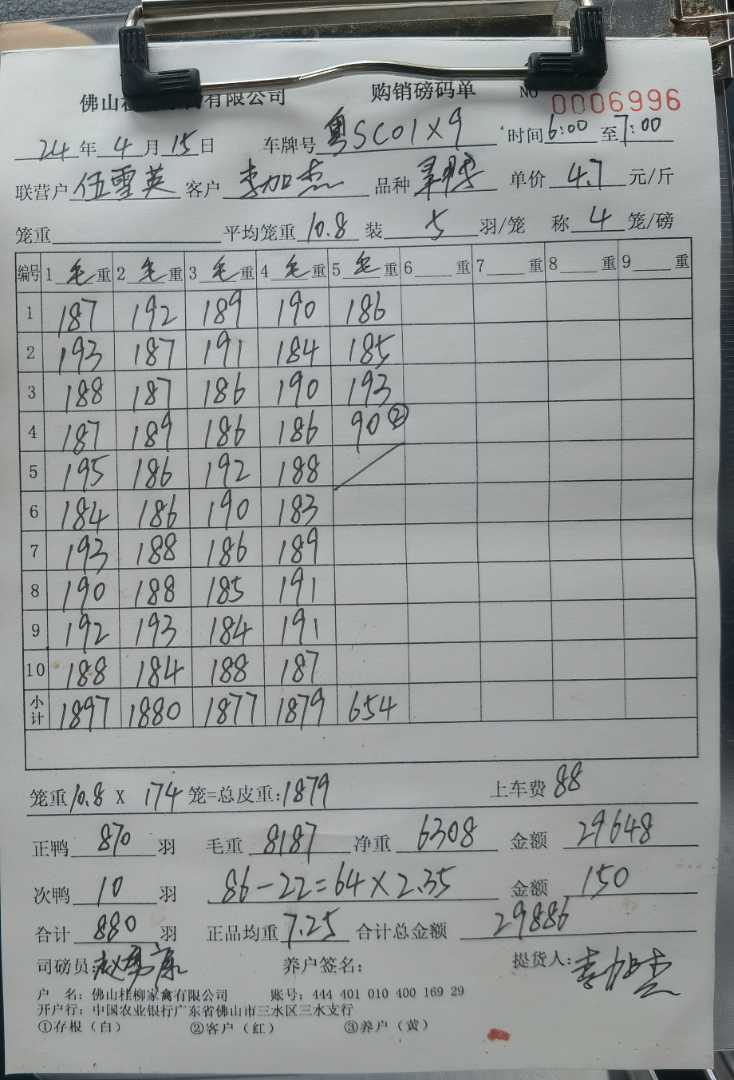 佛山桂柳家禽有限公司 购销磅码单 NO 0006996
24年4月15日 车牌号 粤SC01X9 时间6:00至7:00
联营户 伍雪英 客户 李加杰 品种 单价 4.7 元/斤
笼重 平均笼重 10.8 装 5 羽/笼 称 4 笼/磅
编号 1 毛 重 2 毛 重 3 毛 重 4 毛 重 5 毛 重 6 重 7 重 8 重 9 重
1 187 192 189 190 186
2 193 187 191 184 185
3 188 187 186 190 193
4 187 189 186 186 90②
5 195 186 192 188
6 184 186 190 183
7 193 188 186 189
8 190 188 185 191
9 192 193 184 191
10 188 184 188 187
小计 1897 1880 1877 1879 654
笼重10.8 X 174 笼=总皮重:1879 上车费 88
正鸭 870 羽 毛重 8187 净重 6308 金额 29648
次鸭 10 羽 86-22=64×2.35 金额 150
合计 880 羽 正品均重 7.25 合计总金额 29886
司磅员: 养户签名: 提货人: 李加杰
户 名: 佛山桂柳家禽有限公司 账号: 444 401 010 400 169 29
开户行: 中国农业银行广东省佛山市三水区三水支行
①存根（白） ②客户（红） ③养户（黄）